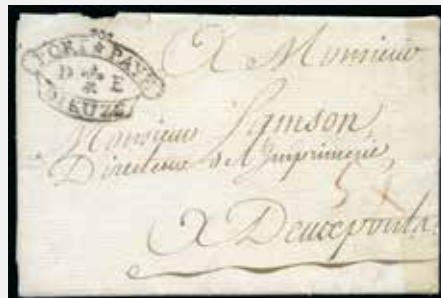 PORT PAYE
D E
DIEUZE
A Monsieur
Monsieur Samson,
Directeur de l'Imprimerie,
A Deuxponts